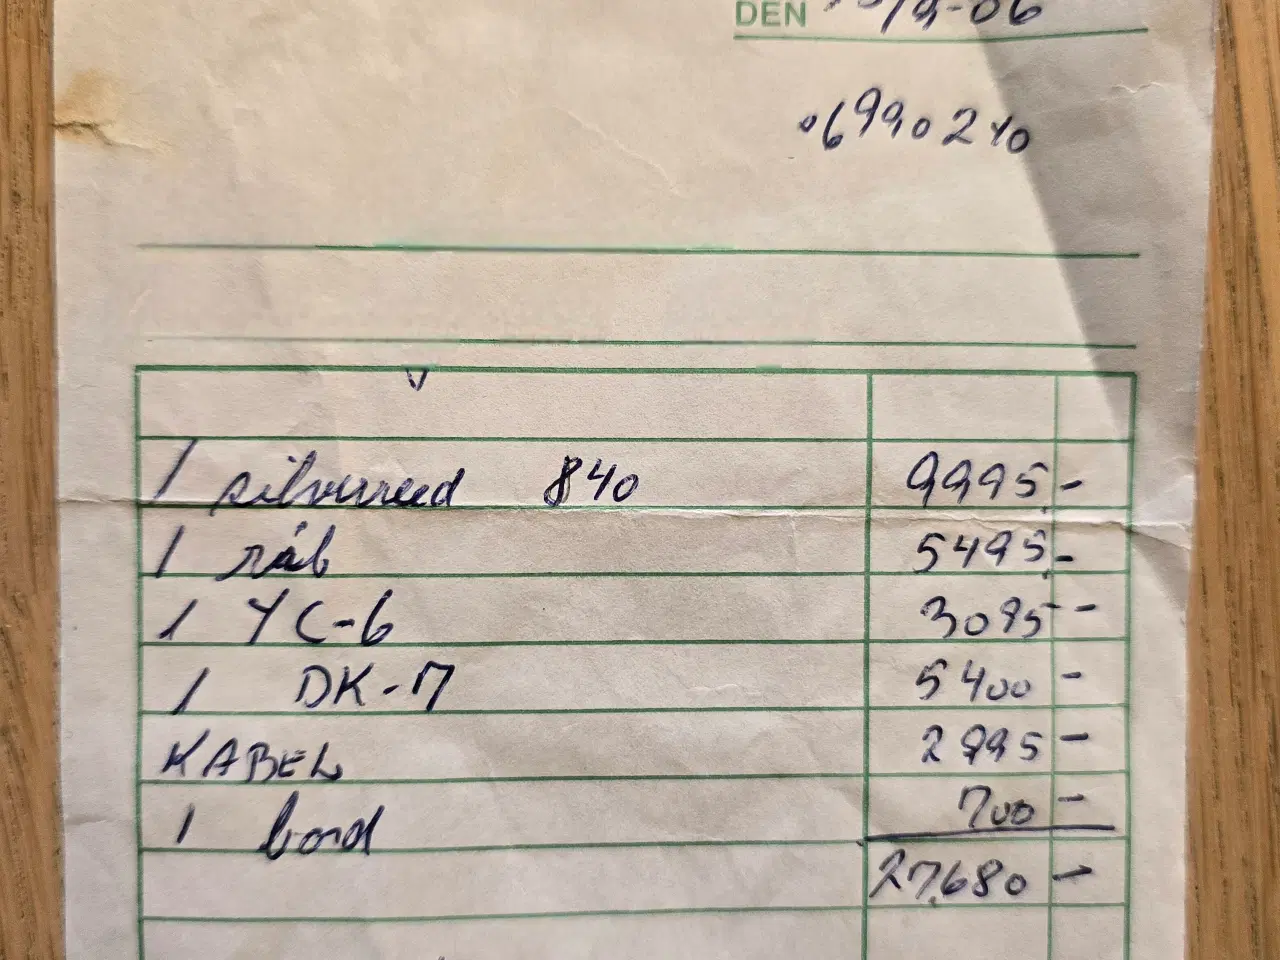 DEN /9-06
1 silverreed 840 9995,-
1 råb 5495,-
1 YC-6 3095-
1 DK-7 5400-
KABEL 2995-
1 bord 700-
27.680-